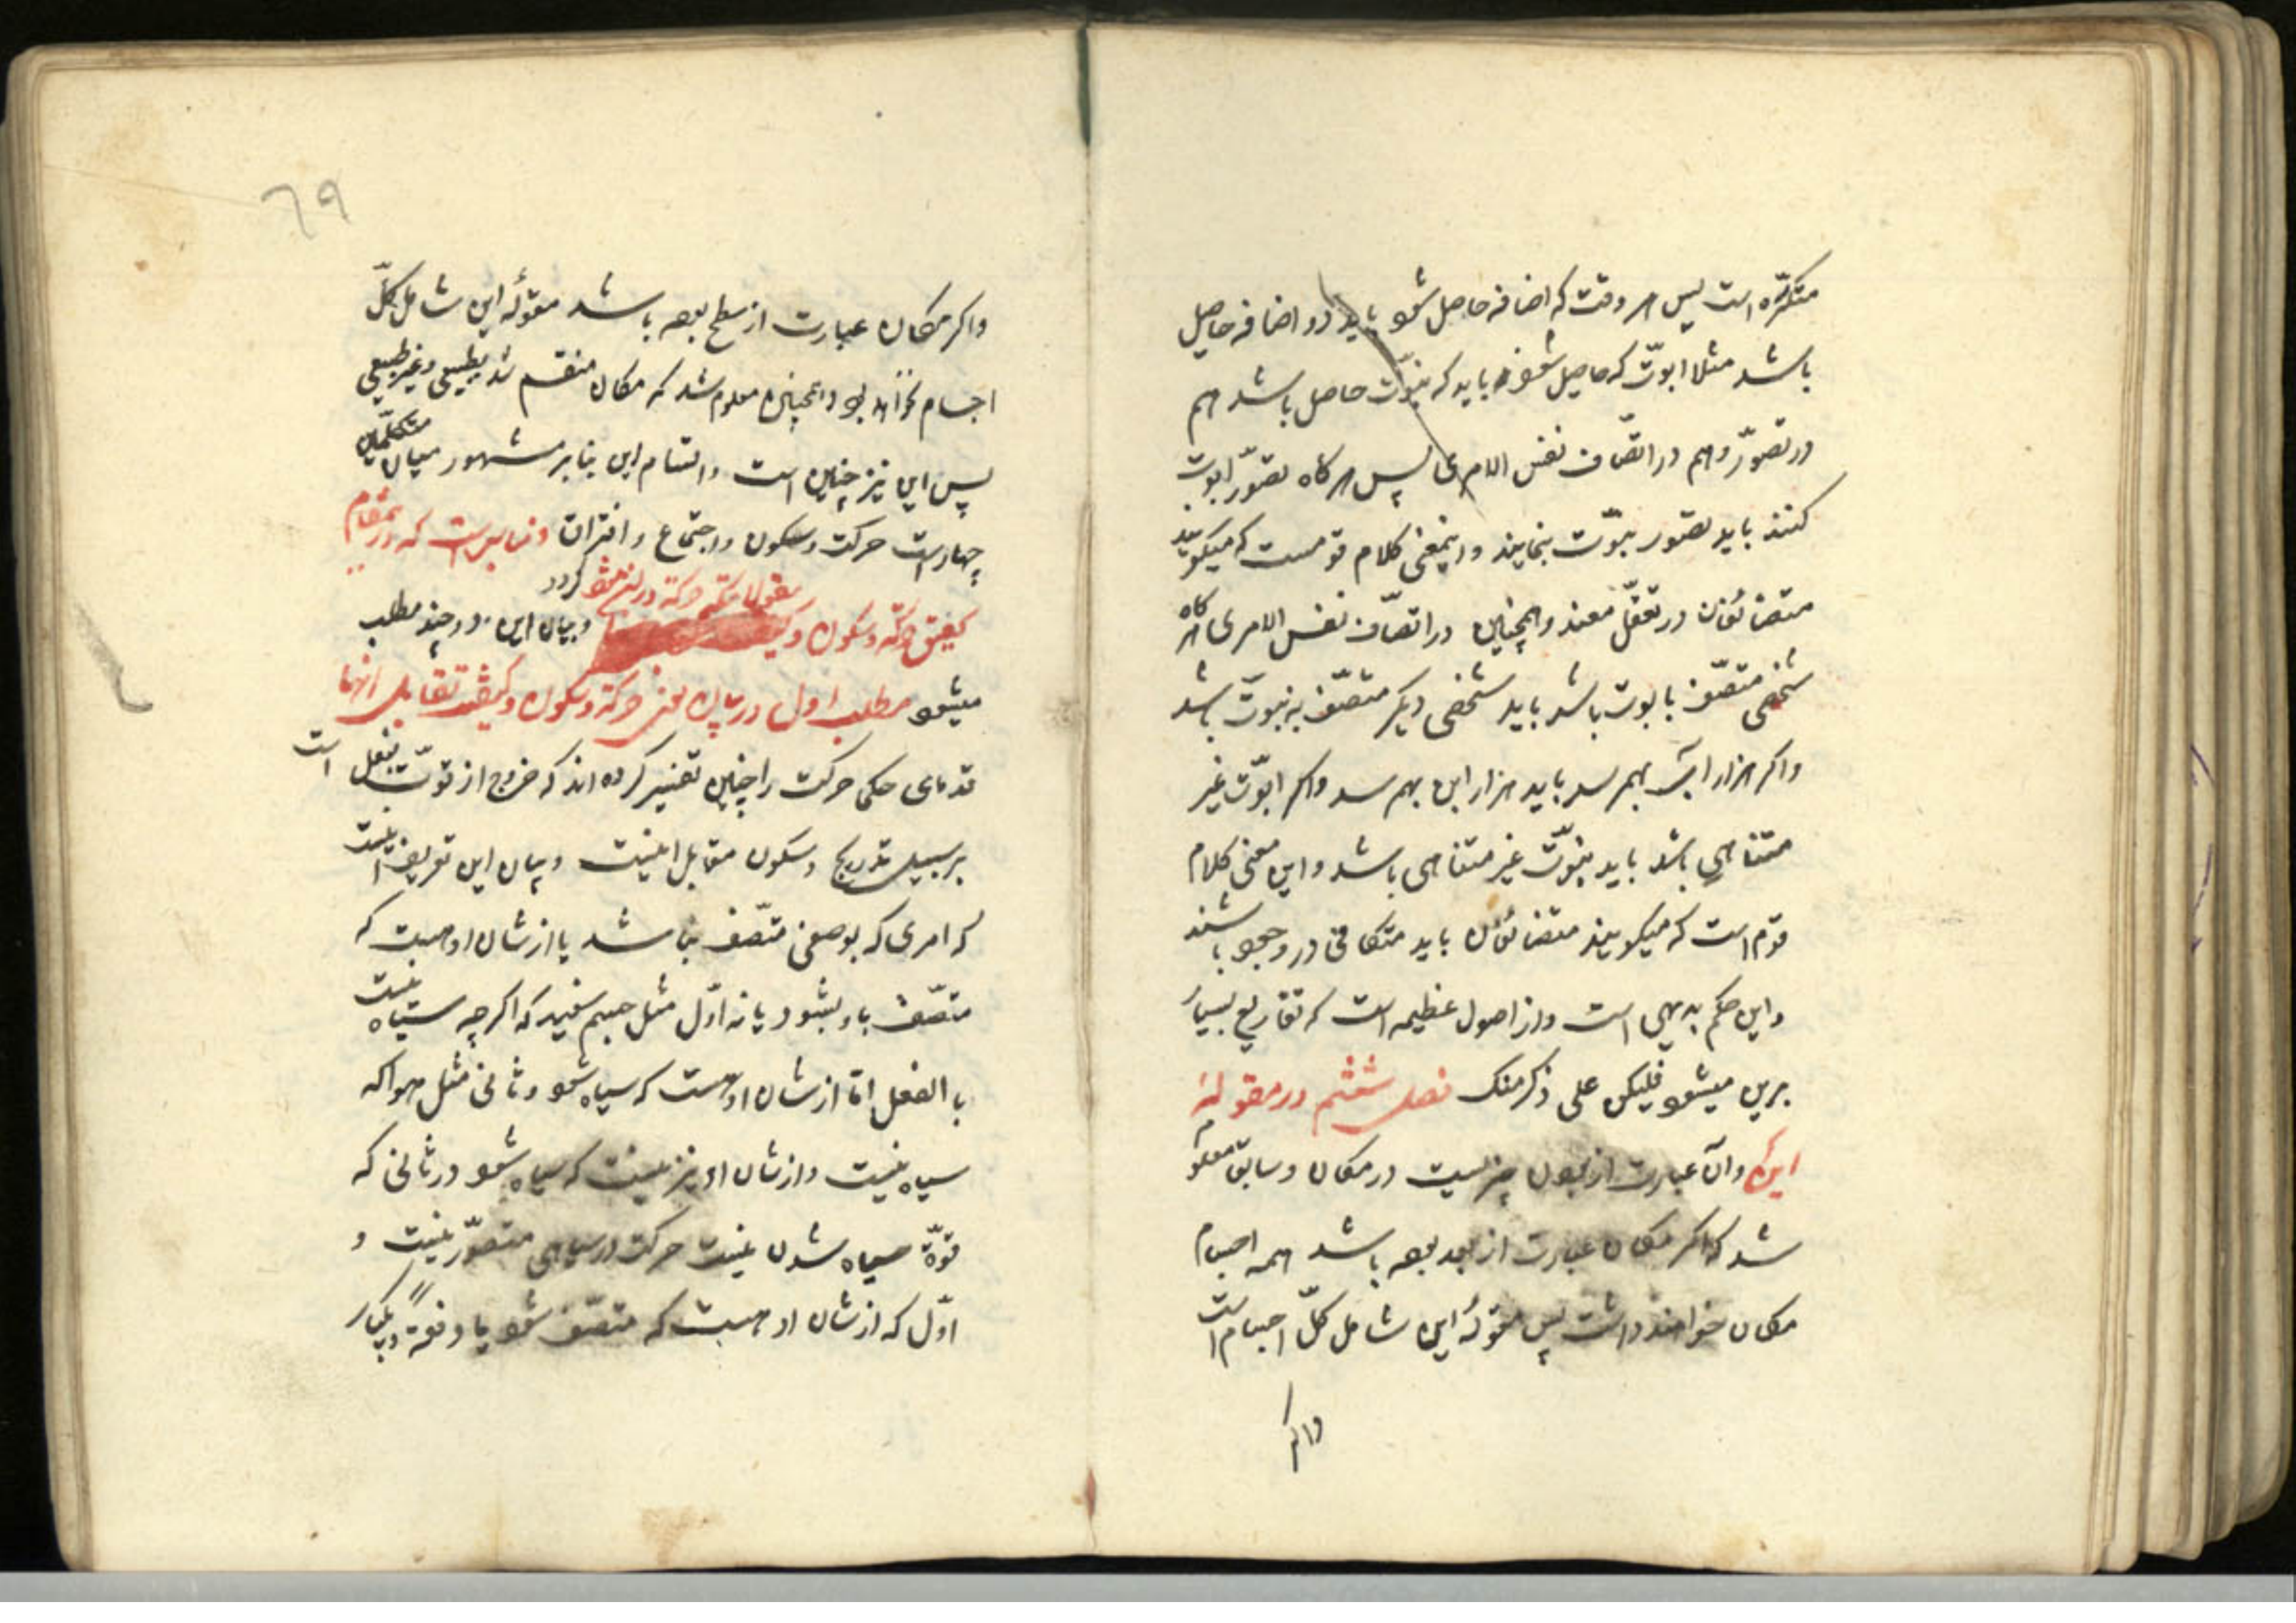 متکرّره است پس هر وقت که اضافه حاصل شود باید دو اضافه حاصل
باشد مثلا ابوّت که حاصل شود باید که بنوّت حاصل باشد هم
در تصوّر و هم در اتصّاف نفس الامری پس هر کاه تصوّر ابوت
کنند باید تصور بنوّت بنمایند و اینمعنی کلام قومست که میکویند
متضائفان در تعقّل معند و همچنین در اتصّاف نفس الامری هر کاه
شخصی متصّف بابوت باشد باید شخصی دیکر متصّف به بنوّت باشد
و اکر هزار اب بهمرسد باید هزار ابن بهمرسد و اکر ابوّت غیر
متناهی باشد باید بنوّت غیر متناهی باشد و این معنی کلام
قوم است که میکویند متضائفان باید متکافی در وجود باشند
و این حکم بدیهی است و از اصول عظیمه است که تفاریع بسیار
برین میشود فلیکن علی ذکر منک فصل ششم در مقولهٔ
این و آن عبارت از بودن چیزیست در مکان و سابق معلوم
شد که اکر مکان عبارت از بعد بوده باشد همه اجسام
مکان خواهند داشت پس مقولهٔ این شامل کلّ اجسام است
و اکر
٦٩
و اکر مکان عبارت از سطح بوده باشد مقولهٔ این شامل کلّ
اجسام نخواهد بود و همچنین معلوم شد که مکان منقسم شد بطبیعی و غیر طبیعی
پس این نیز چنین است و اقسام این بنابر مشهور میان متکلّمین
چهار است حرکت و سکون و اجتماع و افتراق و مناسب است که در مقام
مقولا که حرکة در آن میشود کردد
کیفیّت حرکة و سکون و بیان این در چند مطلب
میشود مطلب اول در بیان معنی حرکة و سکون و کیفیّت تقابل انها
قدمای حکما حرکت را چنین تفسیر کرده اند که خروج از قوّت بفعل است
بر سبیل تدریج و سکون مقابل اینست و بیان این تعریف اینست
که امری که بوصفی متّصف نباشد یا از شان او هست که
متصّف باو بشود یا نه اوّل مثل جسم سفید که اکر چه سیاه نیست
بالفعل امّا از شان او هست که سیاه شود و ثانی مثل هوا که
سیاه نیست و از شان او نیز نیست که سیاه شود در ثانی که
قوّة سیاه شدن نیست حرکت در سیاهی متصوّر نیست و
اوّل که از شان او هست که متصّف شود یا دفعةً و یکبار